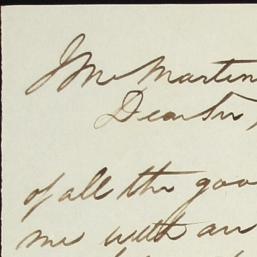 J Mc Martin
Dear Sir,
of all the goo
me with an